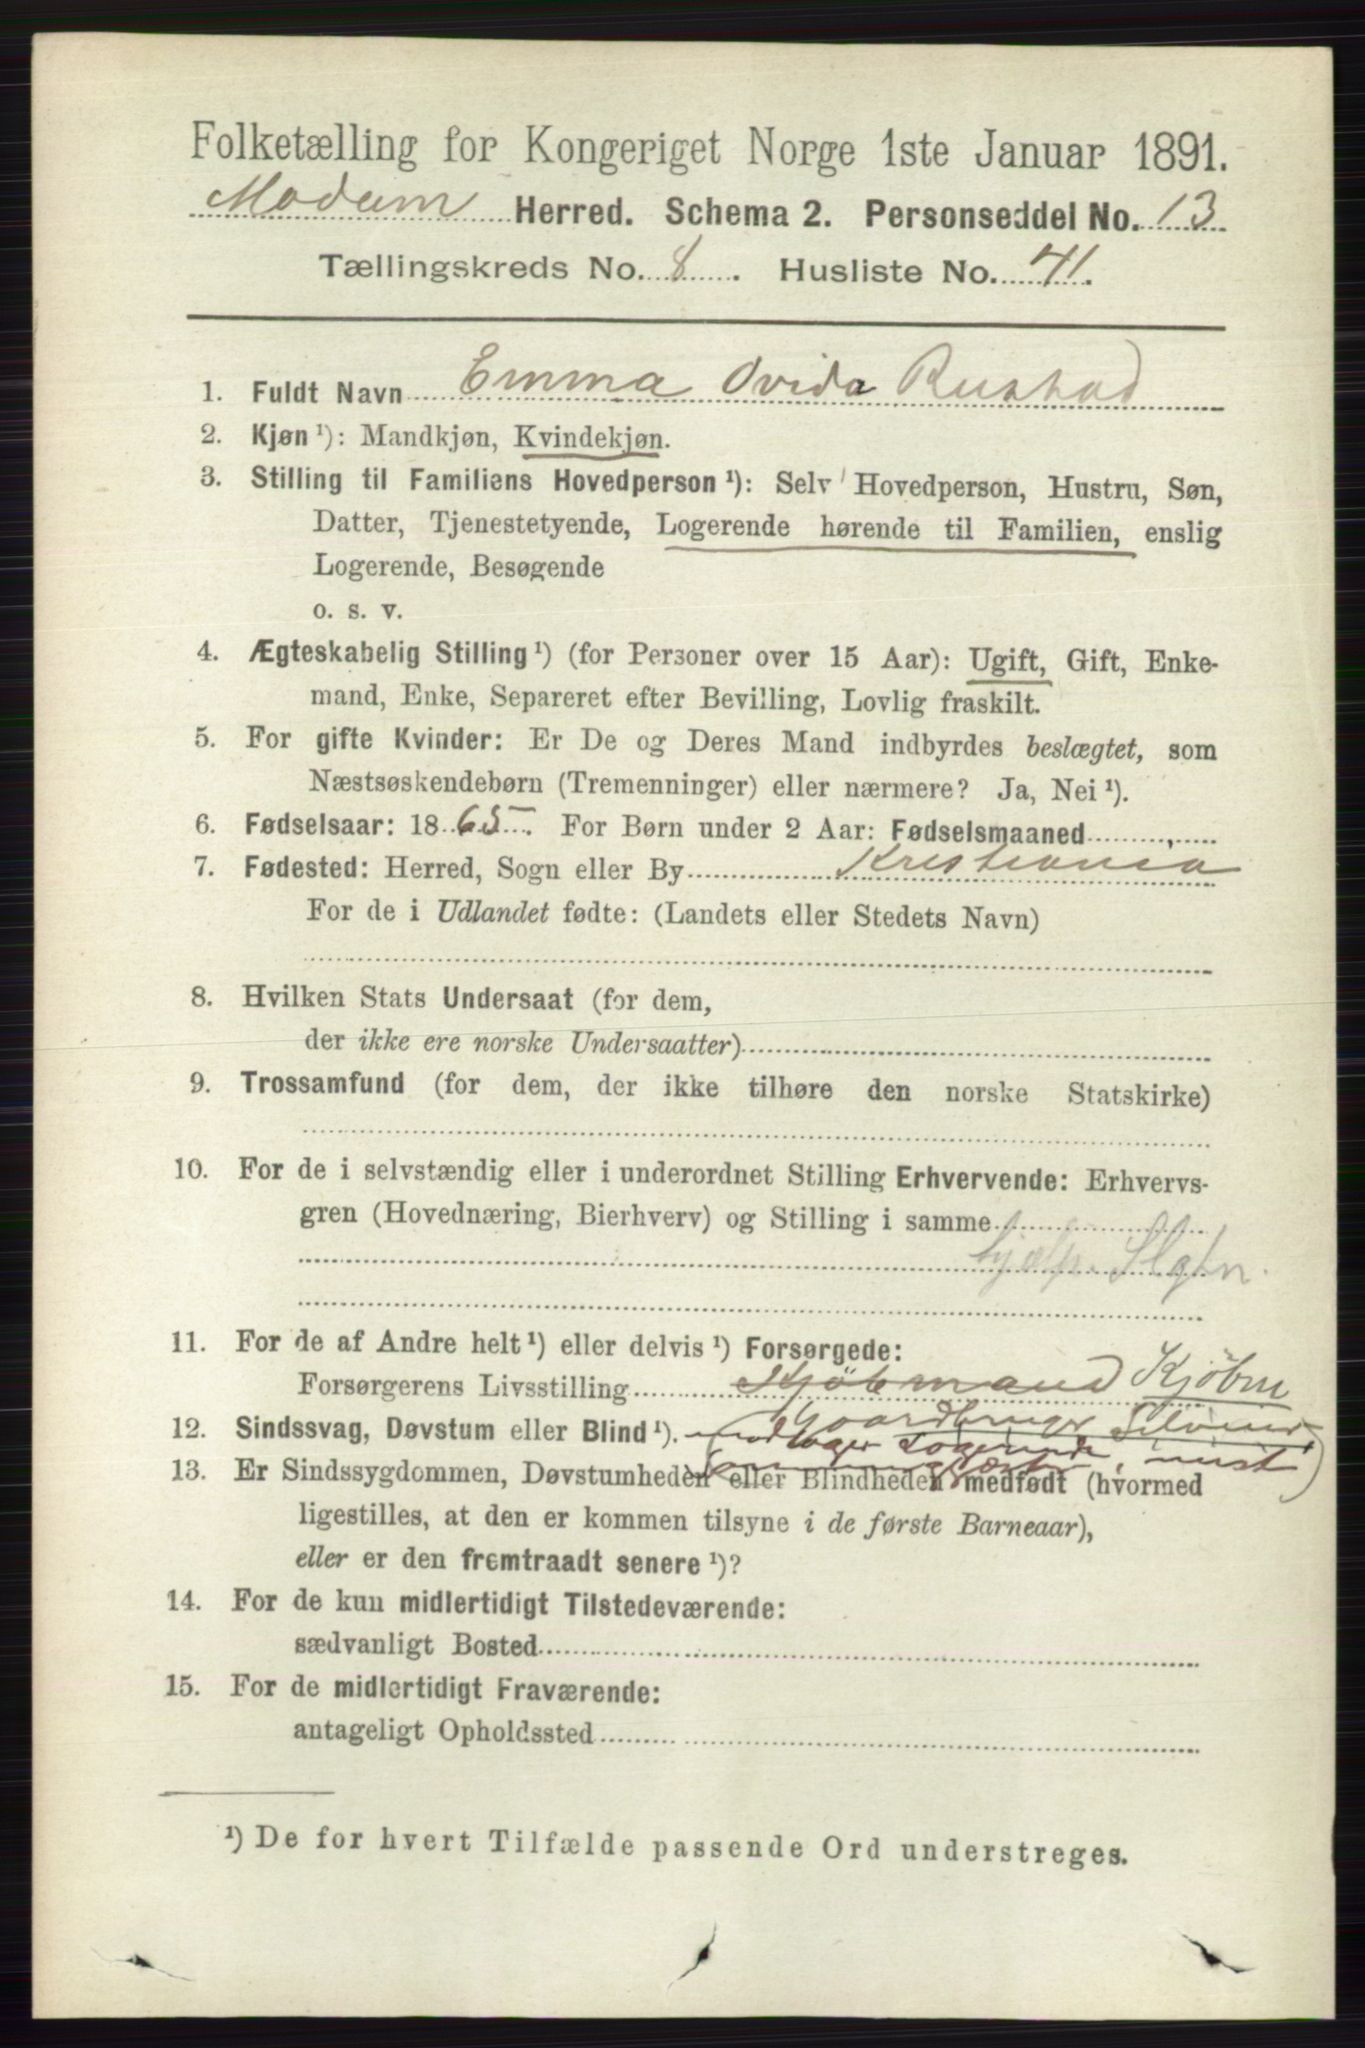 Folketælling for Kongeriget Norge 1ste Januar 1891.
Modum Herred. Schema 2. Personseddel No. 13
Tællingskreds No. 8. Husliste No. 41.
1. Fuldt Navn Emma Ovida Rustad
2. Kjøn ¹): Mandkjøn, Kvindekjøn.
3. Stilling til Familiens Hovedperson ¹): Selv Hovedperson, Hustru, Søn,
Datter, Tjenestetyende, Logerende hørende til Familien, enslig
Logerende, Besøgende
o. s. v.
4. Ægteskabelig Stilling ¹) (for Personer over 15 Aar): Ugift, Gift, Enke-
mand, Enke, Separeret efter Bevilling, Lovlig fraskilt.
5. For gifte Kvinder: Er De og Deres Mand indbyrdes beslægtet, som
Næstsøskendebørn (Tremenninger) eller nærmere? Ja, Nei ¹).
6. Fødselsaar: 1865. For Børn under 2 Aar: Fødselsmaaned
7. Fødested: Herred, Sogn eller By Kristiania
For de i Udlandet fødte: (Landets eller Stedets Navn)
8. Hvilken Stats Undersaat (for dem,
der ikke ere norske Undersaatter)
9. Trossamfund (for dem, der ikke tilhøre den norske Statskirke)
10. For de i selvstændig eller i underordnet Stilling Erhvervende: Erhvervs-
gren (Hovednæring, Bierhverv) og Stilling i samme
hjælp.
11. For de af Andre helt ¹) eller delvis ¹) Forsørgede:
Forsørgerens Livsstilling Kjöbmand Kjöbm
Gaardbruger
12. Sindssvag, Døvstum eller Blind ¹). Logerende
13. Er Sindssygdommen, Døvstumheden eller Blindheden medfødt (hvormed
ligestilles, at den er kommen tilsyne i de første Barneaar),
eller er den fremtraadt senere ¹)?
14. For de kun midlertidigt Tilstedeværende:
sædvanligt Bosted
15. For de midlertidigt Fraværende:
antageligt Opholdssted
¹) De for hvert Tilfælde passende Ord understreges.